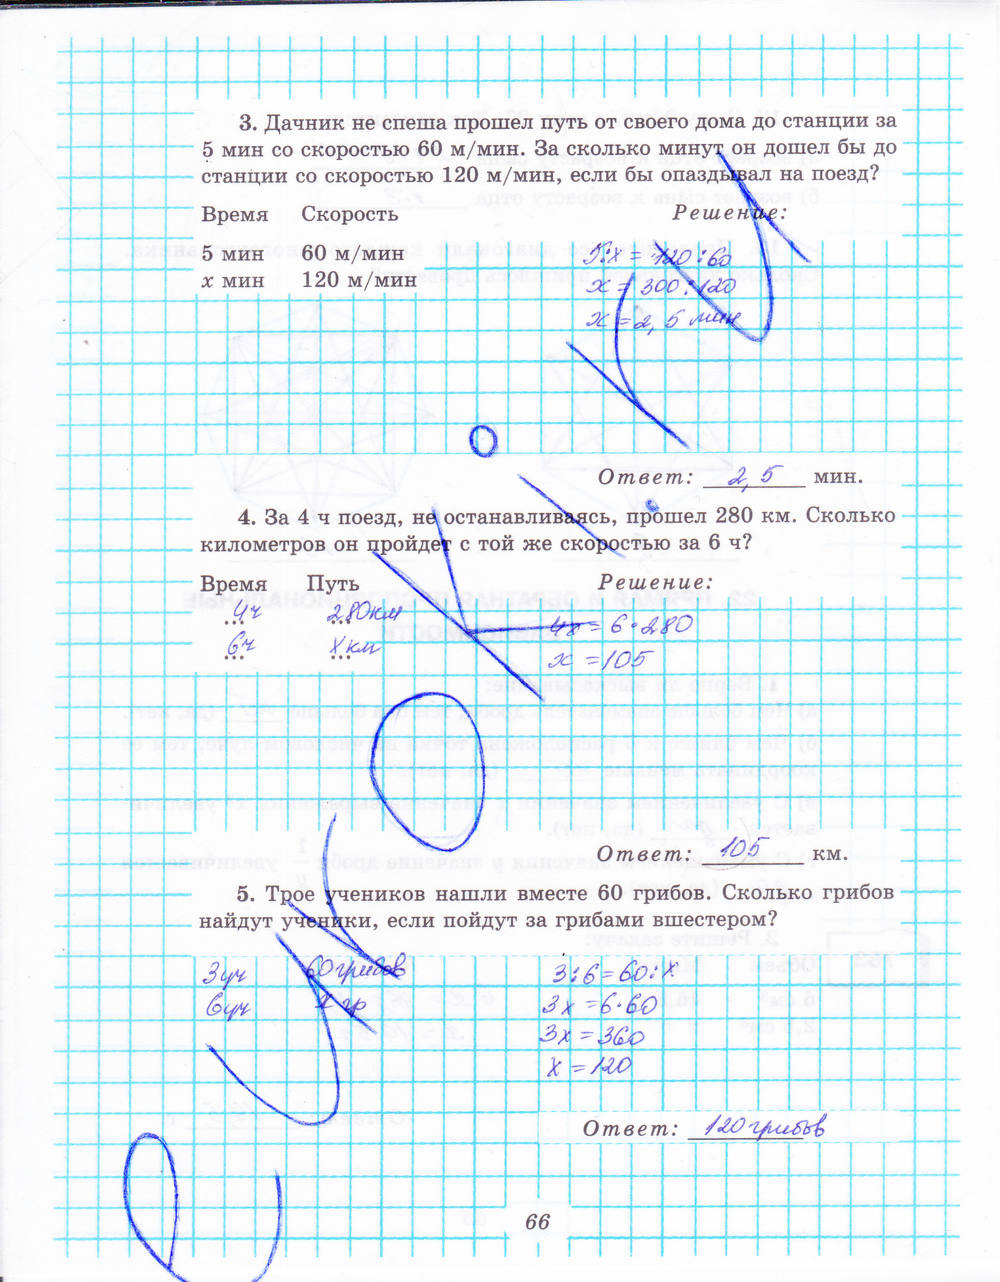 3. Дачник не спеша прошел путь от своего дома до станции за
5 мин со скоростью 60 м/мин. За сколько минут он дошел бы до
станции со скоростью 120 м/мин, если бы опаздывал на поезд?
Время Скорость Решение:
5 мин 60 м/мин 5:x = 120:60
x мин 120 м/мин x = 300:120
x = 2,5 мин
Ответ: 2,5 мин.
4. За 4 ч поезд, не останавливаясь, прошел 280 км. Сколько
километров он пройдет с той же скоростью за 6 ч?
Время Путь Решение:
4ч 280км 4x = 6·280
6ч xкм x = 105
Ответ: 105 км.
5. Трое учеников нашли вместе 60 грибов. Сколько грибов
найдут ученики, если пойдут за грибами вшестером?
3уч 60грибов 3:6=60:x
6уч x гр 3x=6·60
3x=360
x=120
Ответ: 120грибов
66